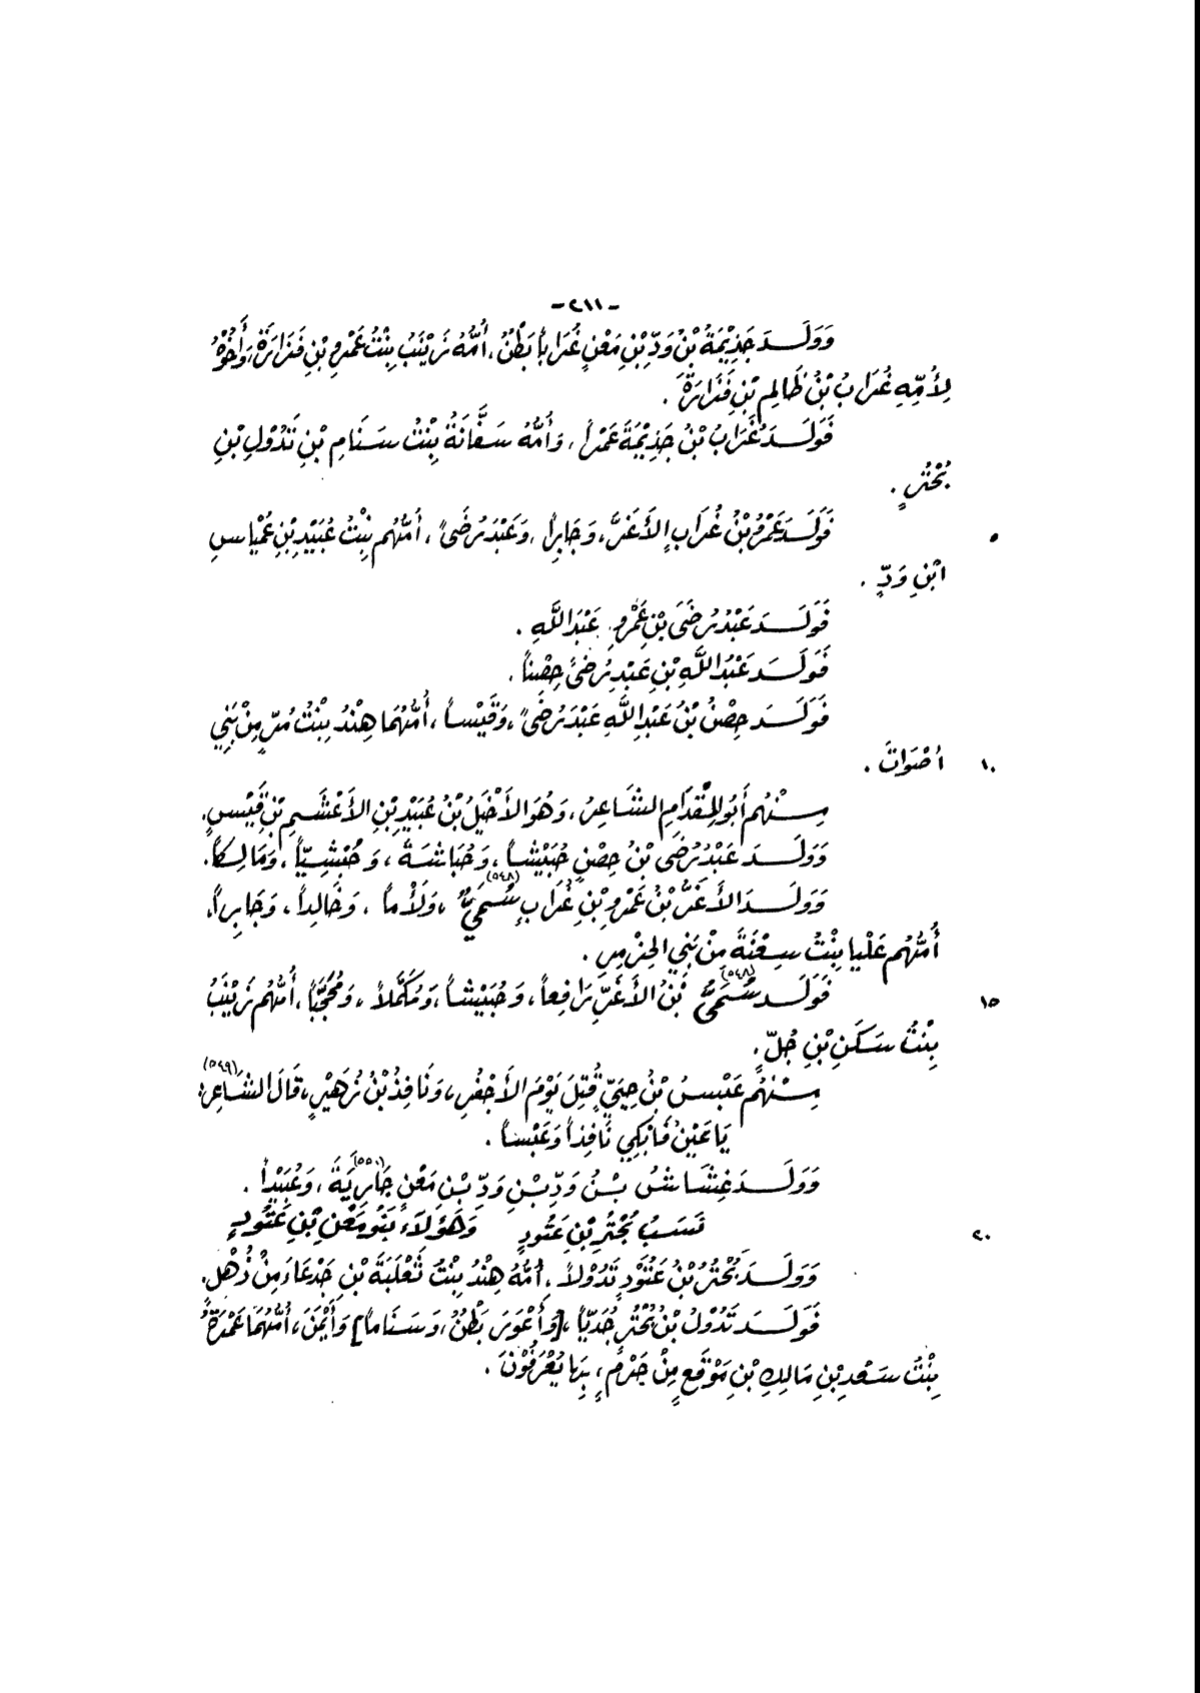 -٢١١-
وَوَلَـدَ جَذِيْمَةُ بْنُ وَدِّ بْنِ مَعْنٍ غُرَاباً بَطْنٌ، أُمُّهُ زَيْنَبُ بِنْتُ عَمْرِو بْنِ فَزَارَةَ، وَأَخُوْهُ
لِأُمِّهِ غُرَابُ بْنُ ظَالِمِ بْنِ فَزَارَةَ .
فَوَلَـدَ غُرَابُ بْنُ جَذِيْمَةَ عَمْراً، وَأُمُّهُ سَفَّانَةُ بِنْتُ سَنَامِ بْنِ تَدُوْلِ بْنِ
بُحْتُرٍ .
٥ فَوَلَـدَ عَمْرُو بْنُ غُرَابٍ الأَغَرَّ، وَجَابِراً، وَعَبْدَ رُضَىً، أُمُّهُم بِنْتُ عُبَيْدِ بْنِ عُمْيَاسِ
ابْنِ وَدٍّ .
فَوَلَـدَ عَبْدُ رُضَىَ بْنِ عَمْرٍو عَبْدَ اللَّهِ .
فَوَلَـدَ عَبْدُ اللَّهِ بْنِ عَبْدِ رُضَىً حِصْناً .
فَوَلَـدَ حِصْنُ بْنُ عَبْدِ اللَّهِ عَبْدَ رُضَىً، وَقَيْساً، أُمُّهُمَا هِنْدُ بِنْتُ مُرٍّ مِنْ بَنِي
١٠ أَصْوَاتَ .
مِـنْهُم أَبُو المِقْدَامِ الشَّاعِرُ، وَهُوَ الأَخْيَلُ بْنُ عُبَيْدِ بْنِ الأَعْشَـمِ بْنِ قَيْسٍ.
وَوَلَـدَ عَبْدُ رُضَى بْنُ حِصْنٍ حُبَيْشاً، وَحُبَاشَةَ، وَحُبْشِـيّاً، وَمَالِكاً.
وَوَلَـدَ الأَغَرُّ بْنُ عَمْرِو بْنِ غُرَابٍ سُمَيٌّ(٥٤٨)، وَلَأْماً، وَخَالِداً، وَجَابِراً،
أُمُّهُم عَلْيَا بِنْتُ سِعْنَةَ مِنْ بَنِي الحِزْمِرِ .
١٥ فَوَلَـدَ سُمَيُّ(٥٤٨) بْنُ الأَغَرِّ رَافِعاً، وَحُبَيْشاً، وَمُكَمَّلاً، وَمُحَجَّباً، أُمُّهُم زَيْنَبُ
بِنْتُ سَكَنِ بْنِ جُلٍّ.
مِـنْهُم عَبْسُ بْنُ حِيَيٍّ قُتِلَ يَوْمَ الأَجْفُرِ، وَنَافِذُ بْنُ زُهَيْرٍ، قَالَ الشَّاعِرُ(٥٤٩):
يَا عَيْنُ فَابْكِي نَافِذاً وَعَبْساً .
وَوَلَـدَ غِشَاشُ بْنُ وَدِّ بْنِ وَدِّ بْنِ مَعْنٍ جَارِيَةَ(٥٥٠)، وَعُبَيْداً .
٢٠ نَسَبُ بُحْتُرِ بْنِ عَتُودٍ وَهَؤُلَاءِ بَنُو مَعْنِ بْنِ عَتُودٍ
وَوَلَـدَ بُحْتُرُ بْنُ عَتُوْدٍ تَدُوْلاً، أُمُّهُ هِنْدُ بِنْتُ ثَعْلَبَةَ بْنِ جَدْعَاءَ مِنْ ذُهْلٍ.
فَوَلَـدَ تَدُوْلُ بْنُ بُحْتُرٍ جُدَيّاً، [وَأَعْوَرَ بَطْنٌ، وَسَنَاماً] وَأَيْمَنَ، أُمُّهُمَا عَمْرَةُ
بِنْتُ سَعْدِ بْنِ مَالِكِ بْنِ مَوْقَعٍ مِنْ جَرْمٍ، بِهَا يُعْرَفُوْنَ .